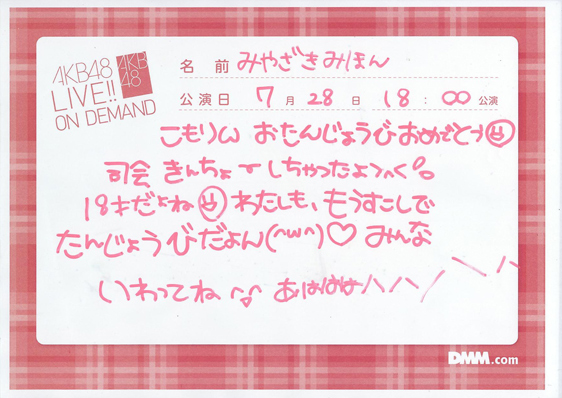 AKB48
LIVE!!
ON DEMAND
AKB
48
名前 みやざきみほん
公演日 7月28日 18:00公演
こもりω おたんじょうびおめでとう
司会 きんちょーしちゃったよ〜
18才だよね わたしも、もうすこしで
たんじょうびだよん(^ω^)♡ みんな
いわってね あははははハハ
DMM.com